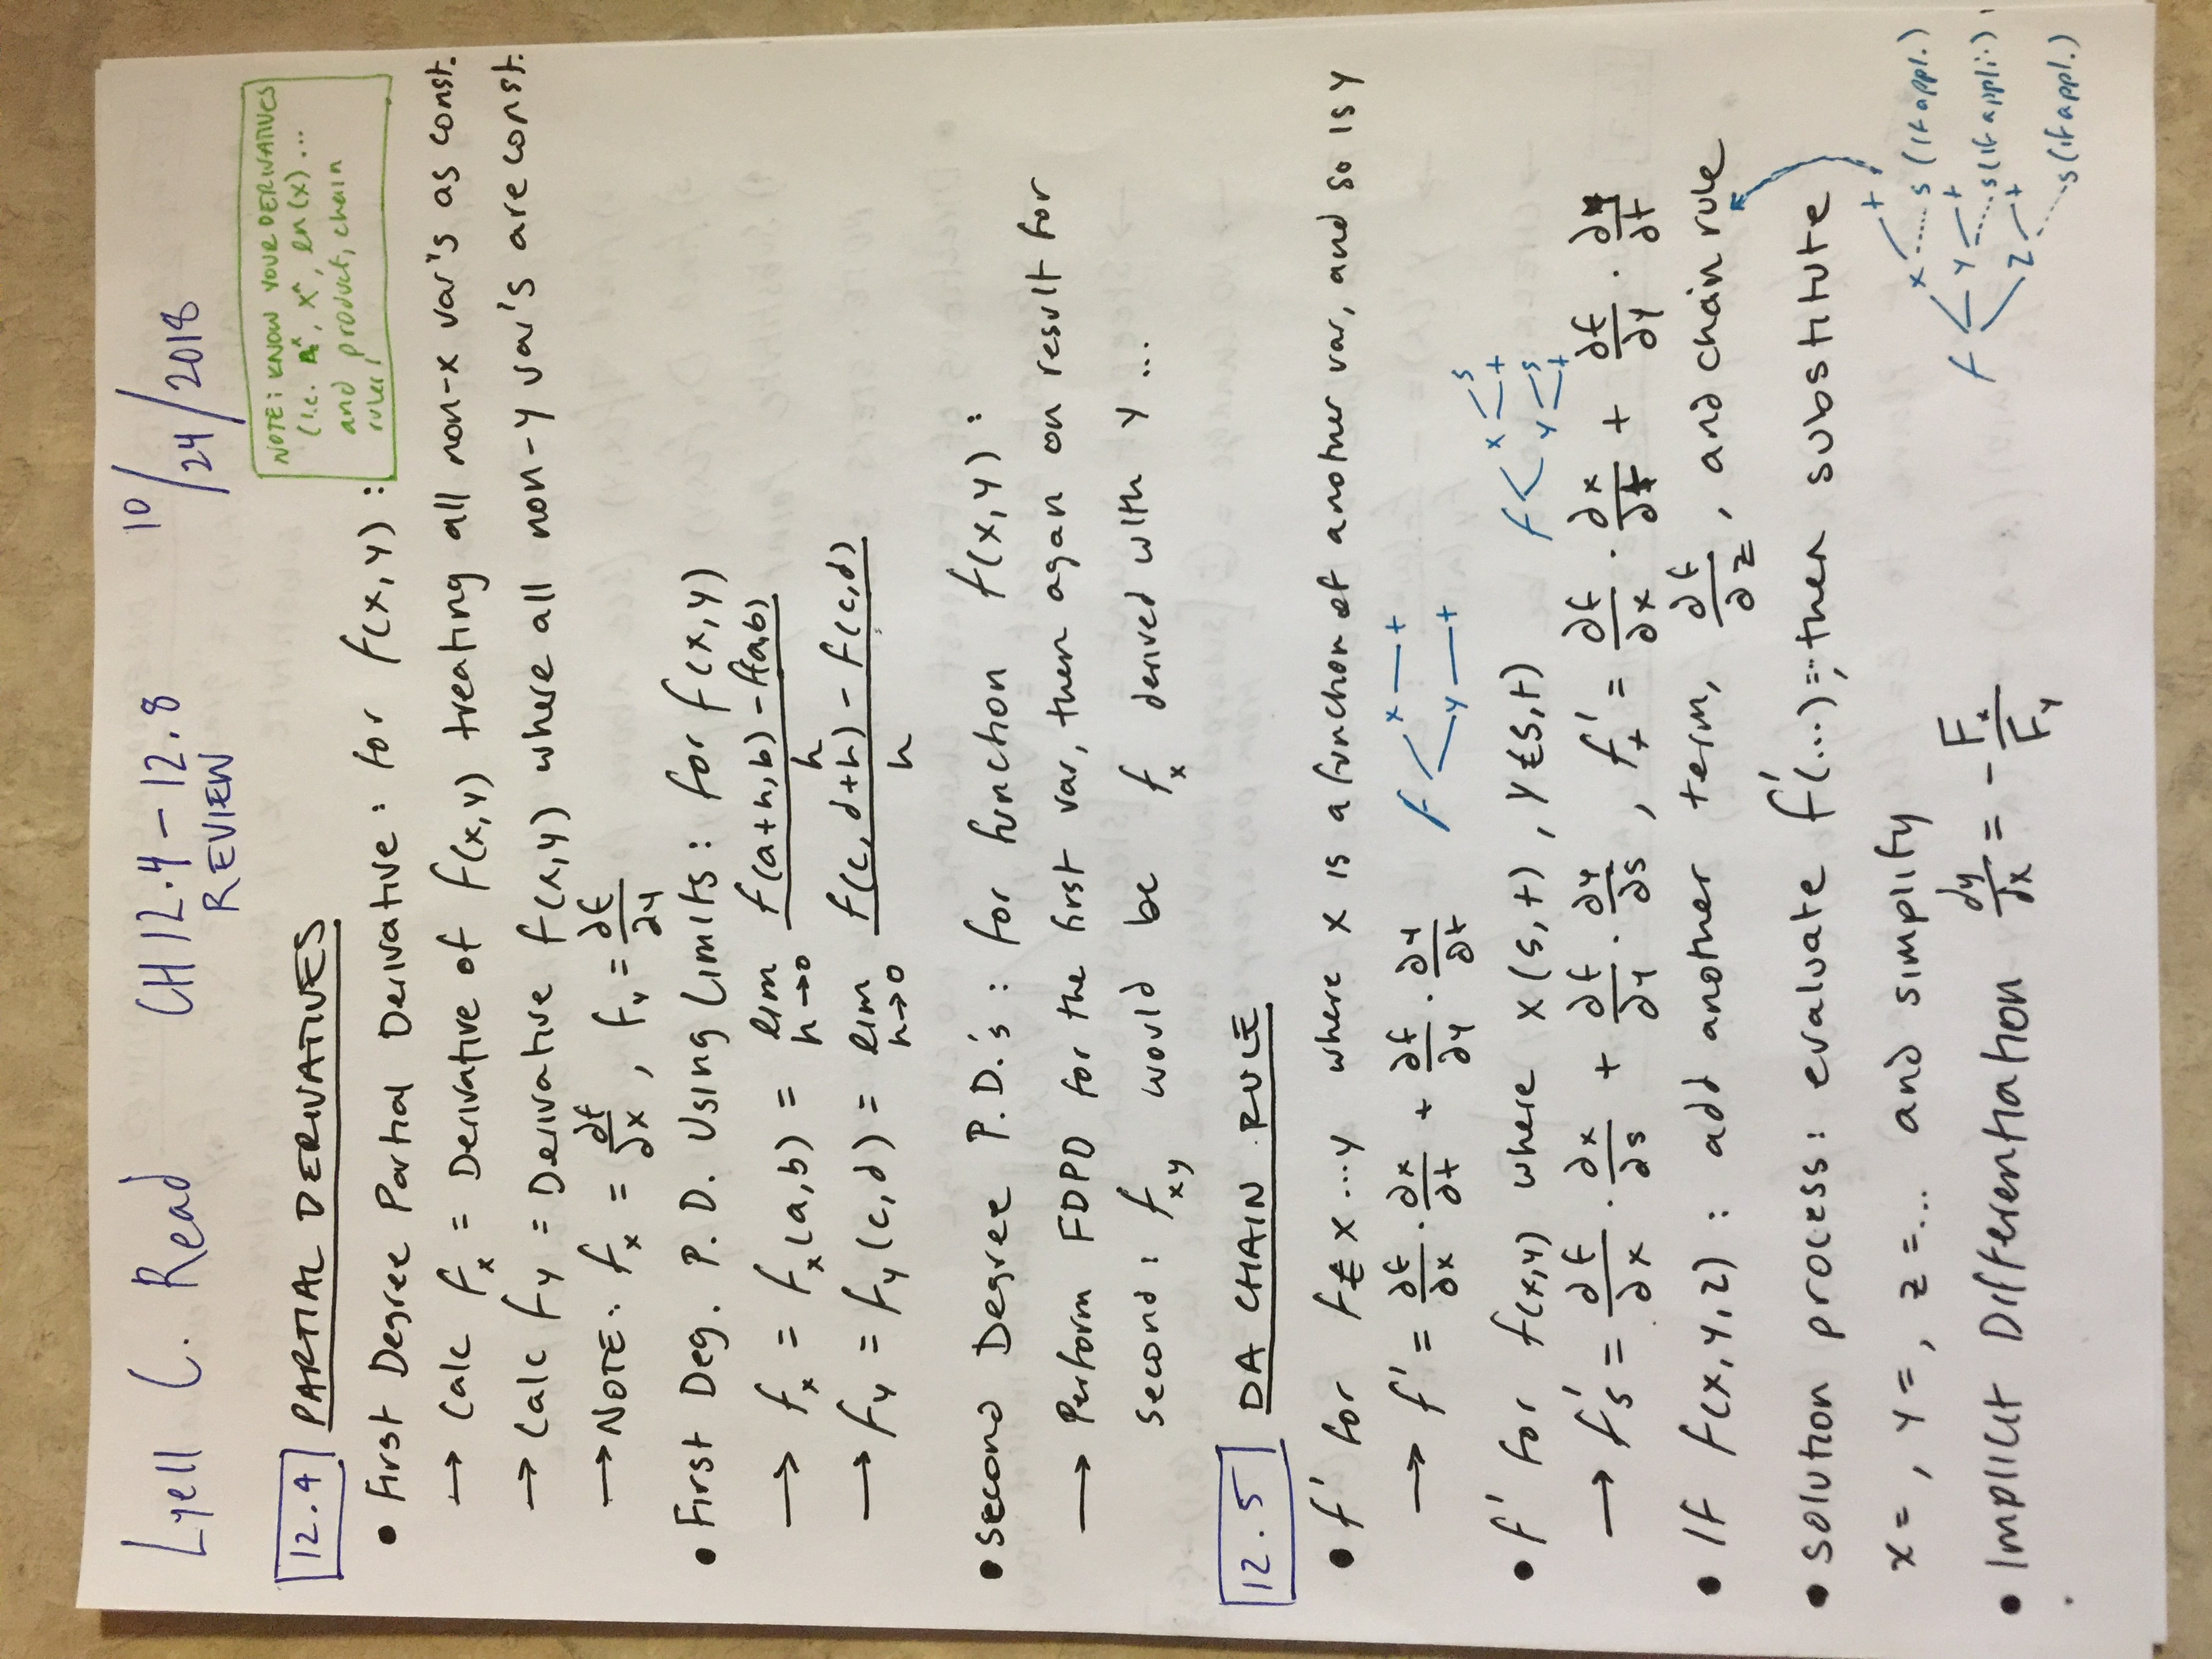 Lyell C. Read CH 12.4 – 12.8 10/24/2018
REVIEW
NOTE: KNOW YOUR DERIVATIVES
(i.e. A^x, x^n, ln(x) ...
and product, chain
rules!
12.4 PARTIAL DERIVATIVES
• First Degree Partial Derivative: for f(x,y):
→ Calc f_x = Derivative of f(x,y) treating all non-x var's as const.
→ Calc f_y = Derivative f(x,y) where all non-y var's are const.
→ NOTE: f_x = ∂f/∂x, f_y = ∂f/∂y
• First Deg. P. D. Using Limits: for f(x,y)
→ f_x = f_x(a,b) = lim h→0 (f(a+h,b) – f(a,b))/h
→ f_y = f_y(c,d) = lim h→0 (f(c,d+h) – f(c,d))/h
• Second Degree P.D.'s: for function f(x,y):
→ Perform FDPD for the first var, then again on result for
second: f_xy would be f_x derived with y ...
12.5 DA CHAIN RULE
• f' for f(x...y where x is a function of another var, and so is y
→ f' = ∂f/∂x · ∂x/∂t + ∂f/∂y · ∂y/∂t
f x t
y t
• f' for f(x,y) where x(s,t), y(s,t)
f x s t
y s t
→ f'_s = ∂f/∂x · ∂x/∂s + ∂f/∂y · ∂y/∂s, f'_t = ∂f/∂x · ∂x/∂t + ∂f/∂y · ∂y/∂t
• If f(x,y,z): add another term, ∂f/∂z, and chain rule
• Solution process: evaluate f'(...)=; then substitute
x= , y= , z=... and simplify
• Implicit Differentiation dy/dx = – F_x/F_y
f x t
s (if appl.)
y t
s (if appli.)
z t
s (if appl.)